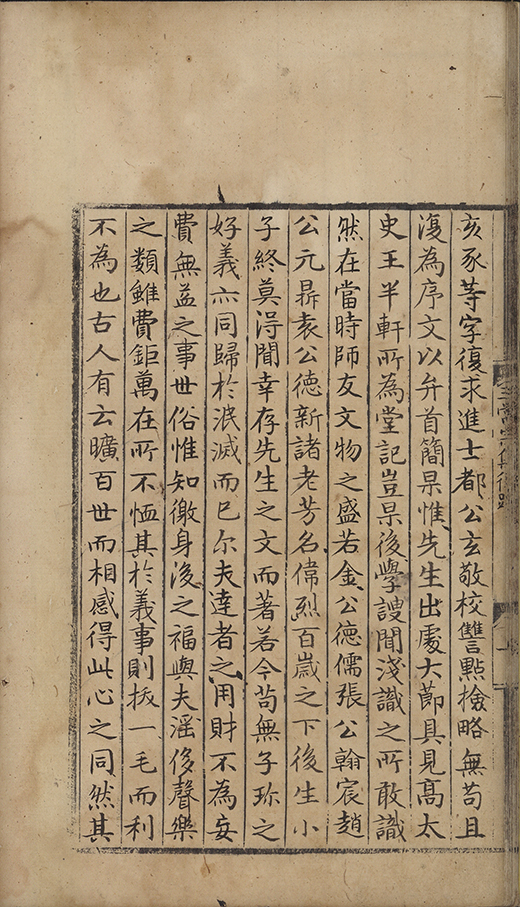 亥豕䓁字復求進士都公玄敬校讐㸃撿略無苟且
復為序文以弁首簡杲惟先生出處大節具見髙太
史王半軒所為堂記豈杲後學謏聞淺識之所敢識
然在當時師友文物之盛若金公德儒張公翰宸趙
公元昇袁公德新諸老芳名偉烈百歲之下後生小
子終莫得聞幸存先生之文而著若今苟無子珎之
好義亦同歸於泯滅而已尔夫達者之用財不為妄
費無益之事世俗惟知徼身後之福與夫淫侈聲樂
之類雖費鉅萬在所不恤其於義事則拔一毛而利
不為也古人有云曠百世而相感得此心之同然其